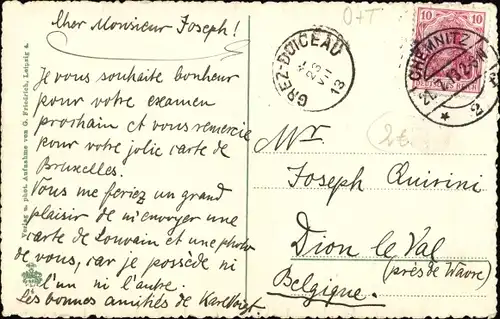 Cher Monsieur Joseph!
Je vous souhaite bonheur
pour votre examen
prochain et vous remercie
pour votre jolie carte de
Bruxelles.
Vous me feriez un grand
plaisir de m'envoyer une
carte de Louvain et une photo
de vous, car je possède ni
l'un ni l'autre.
Les bonnes amitiés de Karl
Verlag u. phot. Aufnahme von G. Friedrich, Leipzig
O+T
GREZ-DOICEAU
23
VII
13
10 10
CHEMNITZ
2
Mr.
2€
Joseph Quirini
Dion le Val
(près de Wavre)
Belgique.